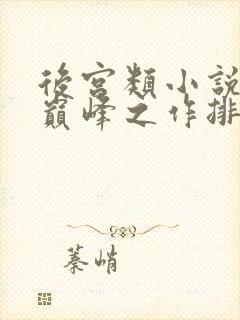 後宮類小說
巔峰之作排
蓁峭